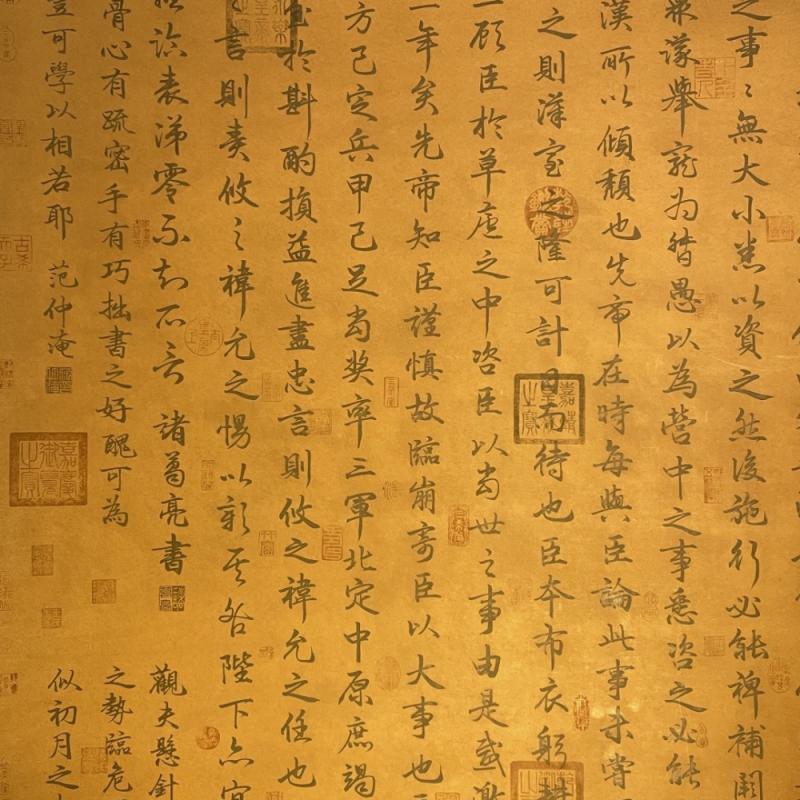 之事〻無大小悉以資之然後施行必能裨補闕
衆議舉寵为督愚以為營中之事悉咨之必能
漢所以傾頹也先帝在時每與臣論此事未嘗
之則漢室之隆可計日而待也臣本布衣躬耕
顧臣於草廬之中咨臣以當世之事由是感激
一年矣先帝知臣謹慎故臨崩寄臣以大事也
方已定兵甲已足當獎率三軍北定中原庶竭
至於斟酌損益進盡忠言則攸之禕允之任也
言則責攸之禕允之慢以彰其咎陛下亦宜
表涕零不知所言 諸葛亮書
骨心有疏密手有巧拙書之好醜可為
豈可學以相若耶 范仲淹
觀夫懸針
之勢臨危
似初月之